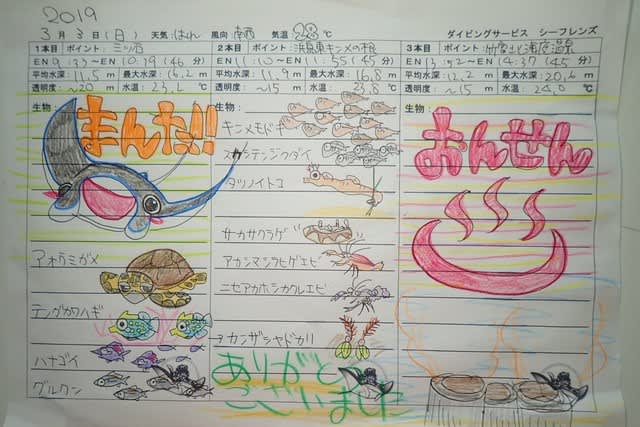 2019
3月3日(日) 天気:はれ 風向:南西 気温:28℃ ダイビングサービス シーフレンズ
1本目 ポイント:三ツ石 2本目 ポイント:浜島東キンメの根 3本目 ポイント:竹富土ヒ海底温泉
EN 9:33~EN 10:19(46分) EN 11:10~EN 11:55(45分) EN 13:52~EN 14:37(45分)
平均水深:11.5m 最大水深:16.2m 平均水深:11.9m 最大水深:16.8m 平均水深:12.2m 最大水深:20.6m
透明度:~20m 水温:23.2℃ 透明度:~15m 水温:23.8℃ 透明度:~15m 水温:24.0℃
生物:
まんた!!
アオウミガメ
テングカワハギ
ハナゴイ
グルクン
生物:
キンメモドキ
スカシテンジクダイ
タツノイトコ
サカサクラゲ
アカシマシラヒゲエビ
ニセアカホシカクレエビ
アカンザシヤドカリ
ありがとう
ございました
生物:
おんせん